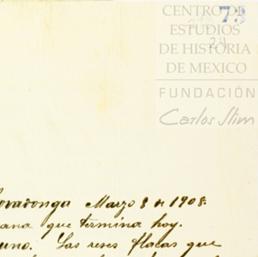 73
24
CENTRO DE
ESTUDIOS
DE HISTORIA
DE MEXICO
FUNDACIÓN
Carlos Slim
Covadonga Marzo 8 de 1908.
ana que termina hoy.
uno. Las reses flacas que